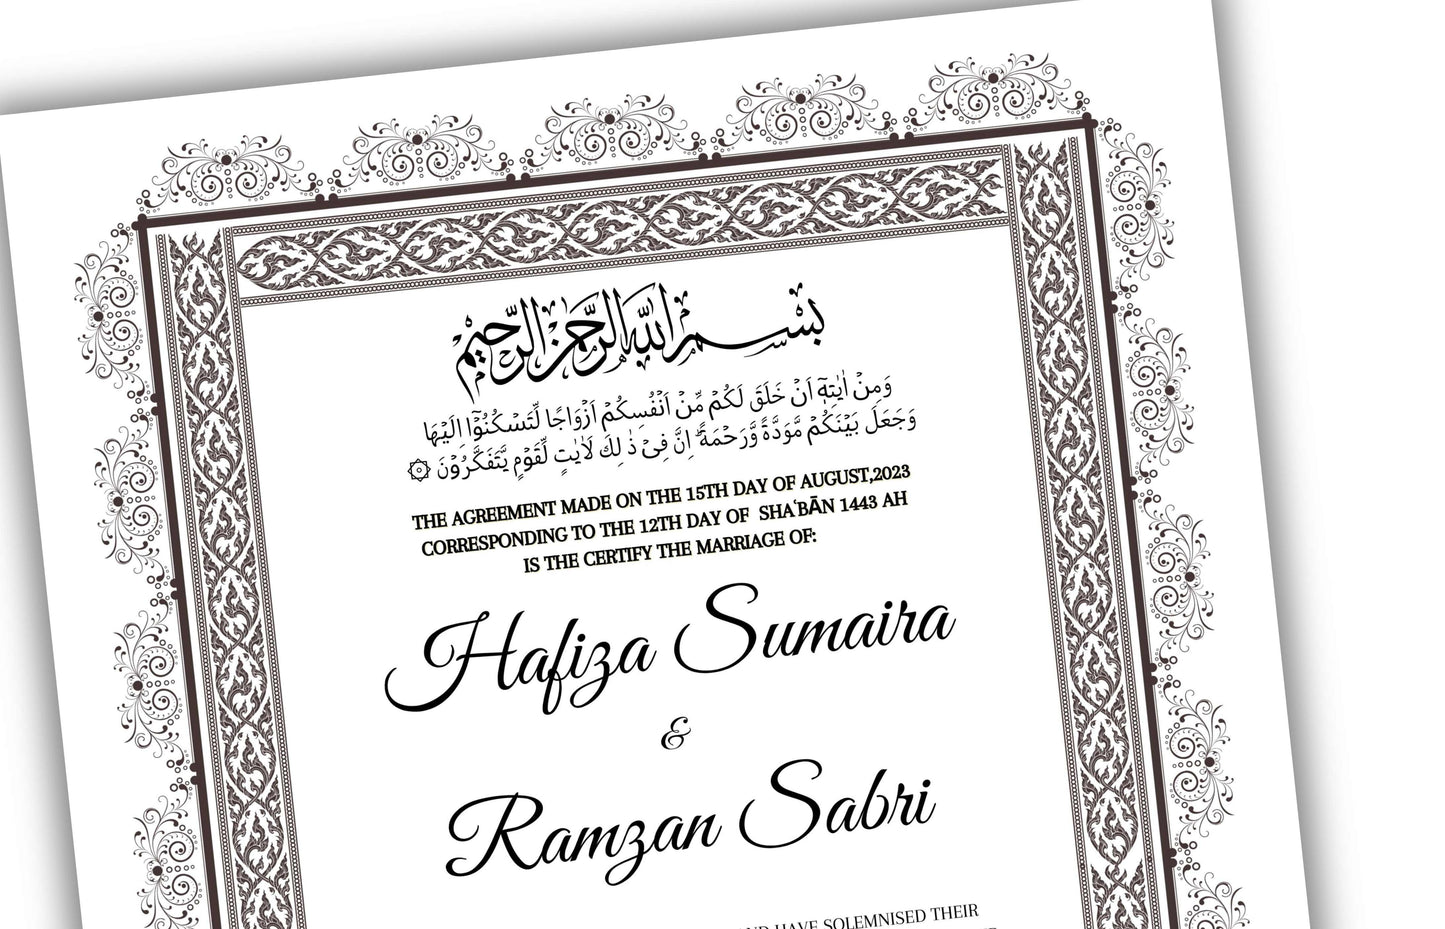 بِسْمِ اللهِ الرَّحْمٰنِ الرَّحِيْمِ
وَمِنْ اٰيٰتِهٖٓ اَنْ خَلَقَ لَكُمْ مِّنْ اَنْفُسِكُمْ اَزْوَاجًا لِّتَسْكُنُوْٓا اِلَيْهَا
وَجَعَلَ بَيْنَكُمْ مَّوَدَّةً وَّرَحْمَةً ۗ اِنَّ فِيْ ذٰلِكَ لَاٰيٰتٍ لِّقَوْمٍ يَّتَفَكَّرُوْنَ ۞
THE AGREEMENT MADE ON THE 15TH DAY OF AUGUST,2023
CORRESPONDING TO THE 12TH DAY OF SHAʿBĀN 1443 AH
IS THE CERTIFY THE MARRIAGE OF:
Hafiza Sumaira
&
Ramzan Sabri
AND HAVE SOLEMNISED THEIR